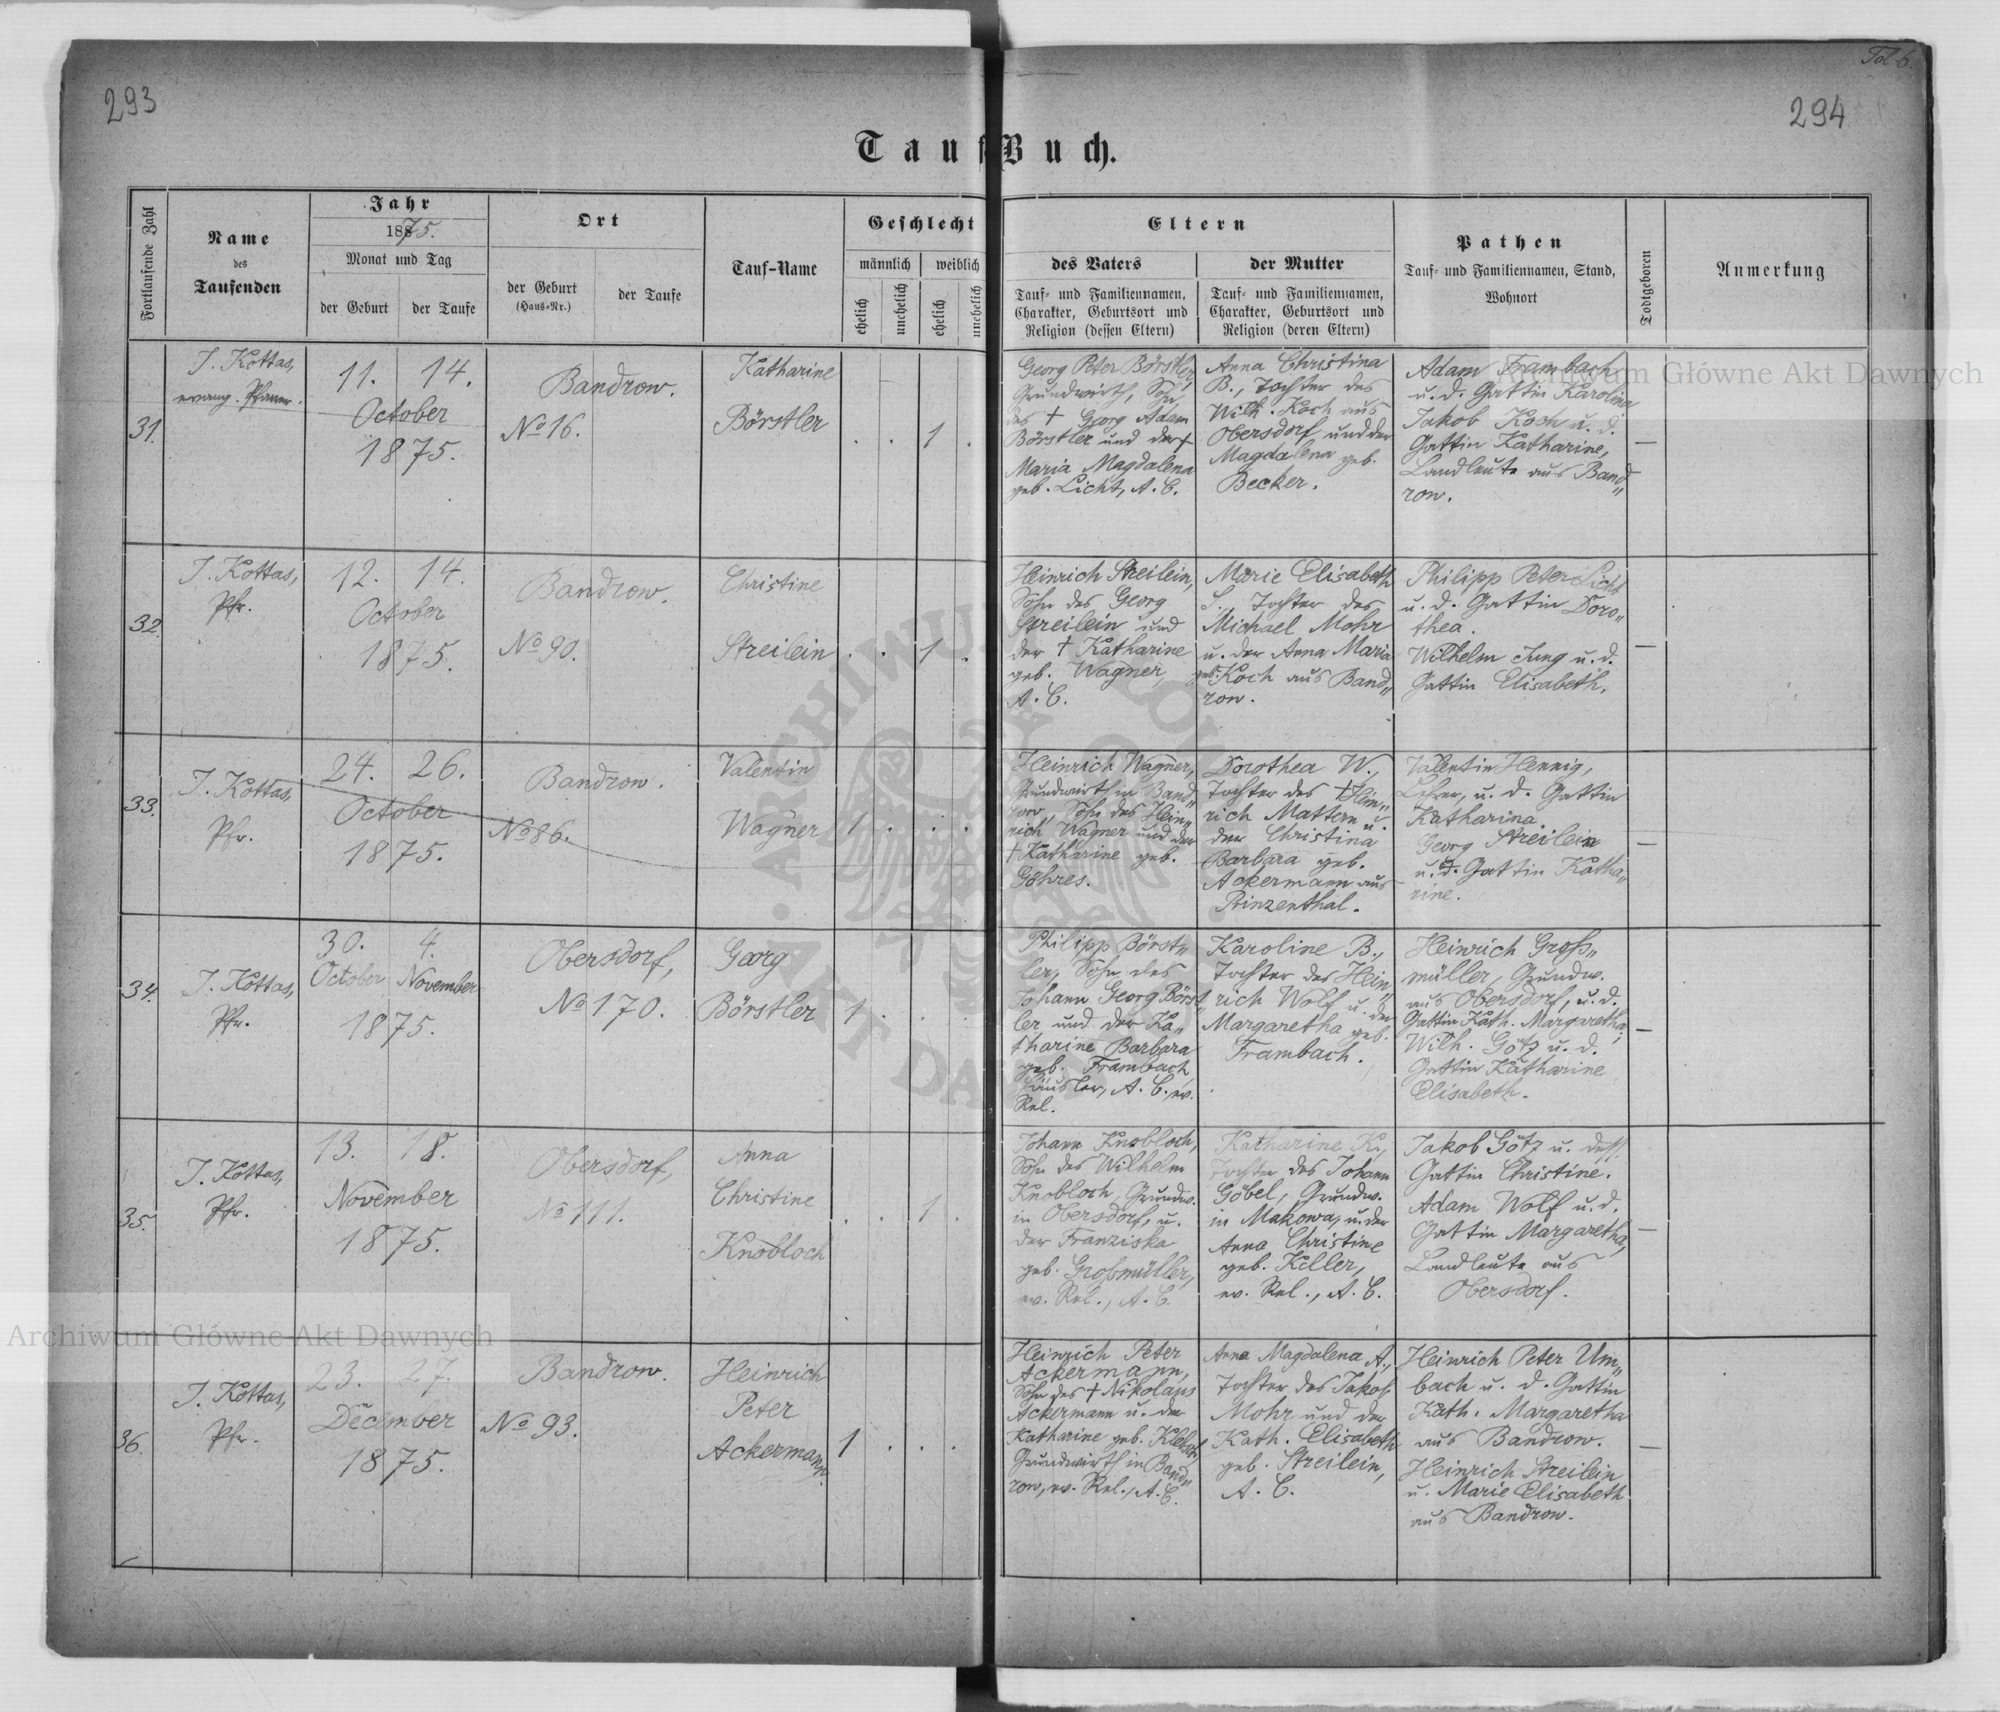 293
294
Fol 6.
Tauf Buch.
Fortlaufende Zahl
Name
des
Taufenden
Jahr
1875.
Monat und Tag
der Geburt
der Taufe
Ort
der Geburt
(Haus-Nr.)
der Taufe
Tauf-Name
Geschlecht
männlich
weiblich
ehelich
unehelich
ehelich
unehelich
Eltern
des Vaters
Tauf- und Familiennamen,
Charakter, Geburtsort und
Religion (dessen Eltern)
der Mutter
Tauf- und Familiennamen,
Charakter, Geburtsort und
Religion (deren Eltern)
Pathen
Tauf- und Familiennamen, Stand,
Wohnort
Todtgeboren
Anmerkung
31.
J. Kottas,
evang. Pfarrer.
11. 14.
October
1875.
Bandrow.
No 16.
Katharine
Börstler
. . 1 .
Georg Peter Börstler,
Grundwirth, Sohn
des † Georg Adam
Börstler und der †
Maria Magdalena
geb. Licht, A. C.
Anna Christina
B., Tochter des
Wilh. Koch aus
Obersdorf und der
Magdalena geb.
Becker.
Adam Frambach
u. d. Gattin Karolina
Jakob Koch u. d.
Gattin Katharine,
Landleute aus Band„
row.
—
32.
J. Kottas,
Pfr.
12. 14.
October
1875.
Bandrow.
No 90.
Christine
Streilein
. . 1 .
Heinrich Streilein,
Sohn des Georg
Streilein und
der † Katharine
geb. Wagner,
A. C.
Marie Elisabeth
S., Tochter des
Michael Mohr
u. der Anna Maria
geb. Koch aus Band„
row.
Philipp Peter Licht
u. d. Gattin Doro„
thea.
Wilhelm Jung u. d.
Gattin Elisabeth.
—
33.
J. Kottas,
Pfr.
24. 26.
October
1875.
Bandrow.
No 86.
Valentin
Wagner
1 . . .
Heinrich Wagner,
Grundwirth in Band„
row, Sohn des Hein„
rich Wagner und der
† Katharine geb.
Göhres.
Dorothea W.,
Tochter des † Hein„
rich Mattern u.
der Christina
Barbara geb.
Ackermann aus
Prinzenthal.
Valentin Hennig,
Lehrer, u. d. Gattin
Katharina.
Georg Streilein
u. d. Gattin Katha„
rine.
—
34.
J. Kottas,
Pfr.
30. 4.
October November
1875.
Obersdorf,
No 170.
Georg
Börstler
1 . . .
Philipp Börst„
ler, Sohn des
Johann Georg Börst„
ler und der Ka„
tharine Barbara
geb. Frambach
Häusler, A. C. ev.
Rel.
Karoline B.,
Tochter des Hein„
rich Wolf u. der
Margaretha geb.
Frambach.
Heinrich Groß„
müller, Grundw.
aus Obersdorf, u. d.
Gattin Kath. Margaretha,
Wilh. Götz u. d.
Gattin Katharine
Elisabeth.
—
35.
J. Kottas,
Pfr.
13. 18.
November
1875.
Obersdorf,
No 111.
Anna
Christine
Knobloch
. . 1 .
Johann Knobloch,
Sohn des Wilhelm
Knobloch, Grundw.
in Obersdorf, u.
der Franziska
geb. Großmüller,
ev. Rel., A. C.
Katharine K.,
Tochter des Johann
Göbel, Grundw.
in Makowa, u. der
Anna Christine
geb. Keller,
ev. Rel., A. C.
Jakob Götz u. dess.
Gattin Christine.
Adam Wolf u. d.
Gattin Margaretha,
Landleute aus
Obersdorf.
—
36.
J. Kottas,
Pfr.
23. 27.
December
1875.
Bandrow.
No 93.
Heinrich
Peter
Ackermann
1 . . .
Heinrich Peter
Ackermann,
Sohn des † Nikolaus
Ackermann u. der
Katharine geb.
Grundwirth in Band„
row, ev. Rel., A. C.
Anna Magdalena A.,
Tochter des Jakob
Mohr und der
Kath. Elisabeth
geb. Streilein,
A. C.
Heinrich Peter Um„
bach u. d. Gattin
Kath. Margaretha
aus Bandrow.
Heinrich Streilein
u. Marie Elisabeth
aus Bandrow.
—
Archiwum Główne Akt Dawnych
Archiwum Główne Akt Dawnych